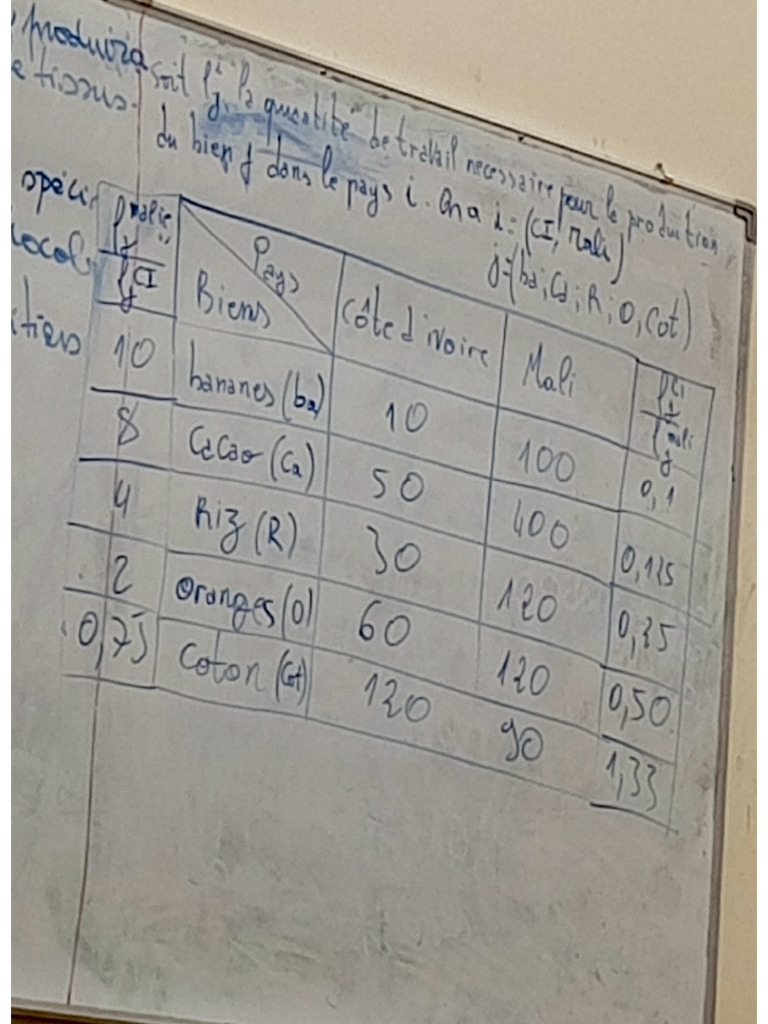 produira
e tissus.
spéci
ocol
tions
soit l^i_j, la quantité de travail necessaire pour la production
du bien j dans le pays i. On a i = (CI, Mali)
j = (ba; Ca; R; O, Cot)
l^malie_j / l^CI_j Pays Biens Côte d'ivoire Mali l^CI_j / l^mali_j
10 bananes (ba) 10 100 0,1
8 Cacao (Ca) 50 400 0,125
4 Riz (R) 30 120 0,25
2 Oranges (O) 60 120 0,50
0,75 Coton (Cot) 120 90 1,33